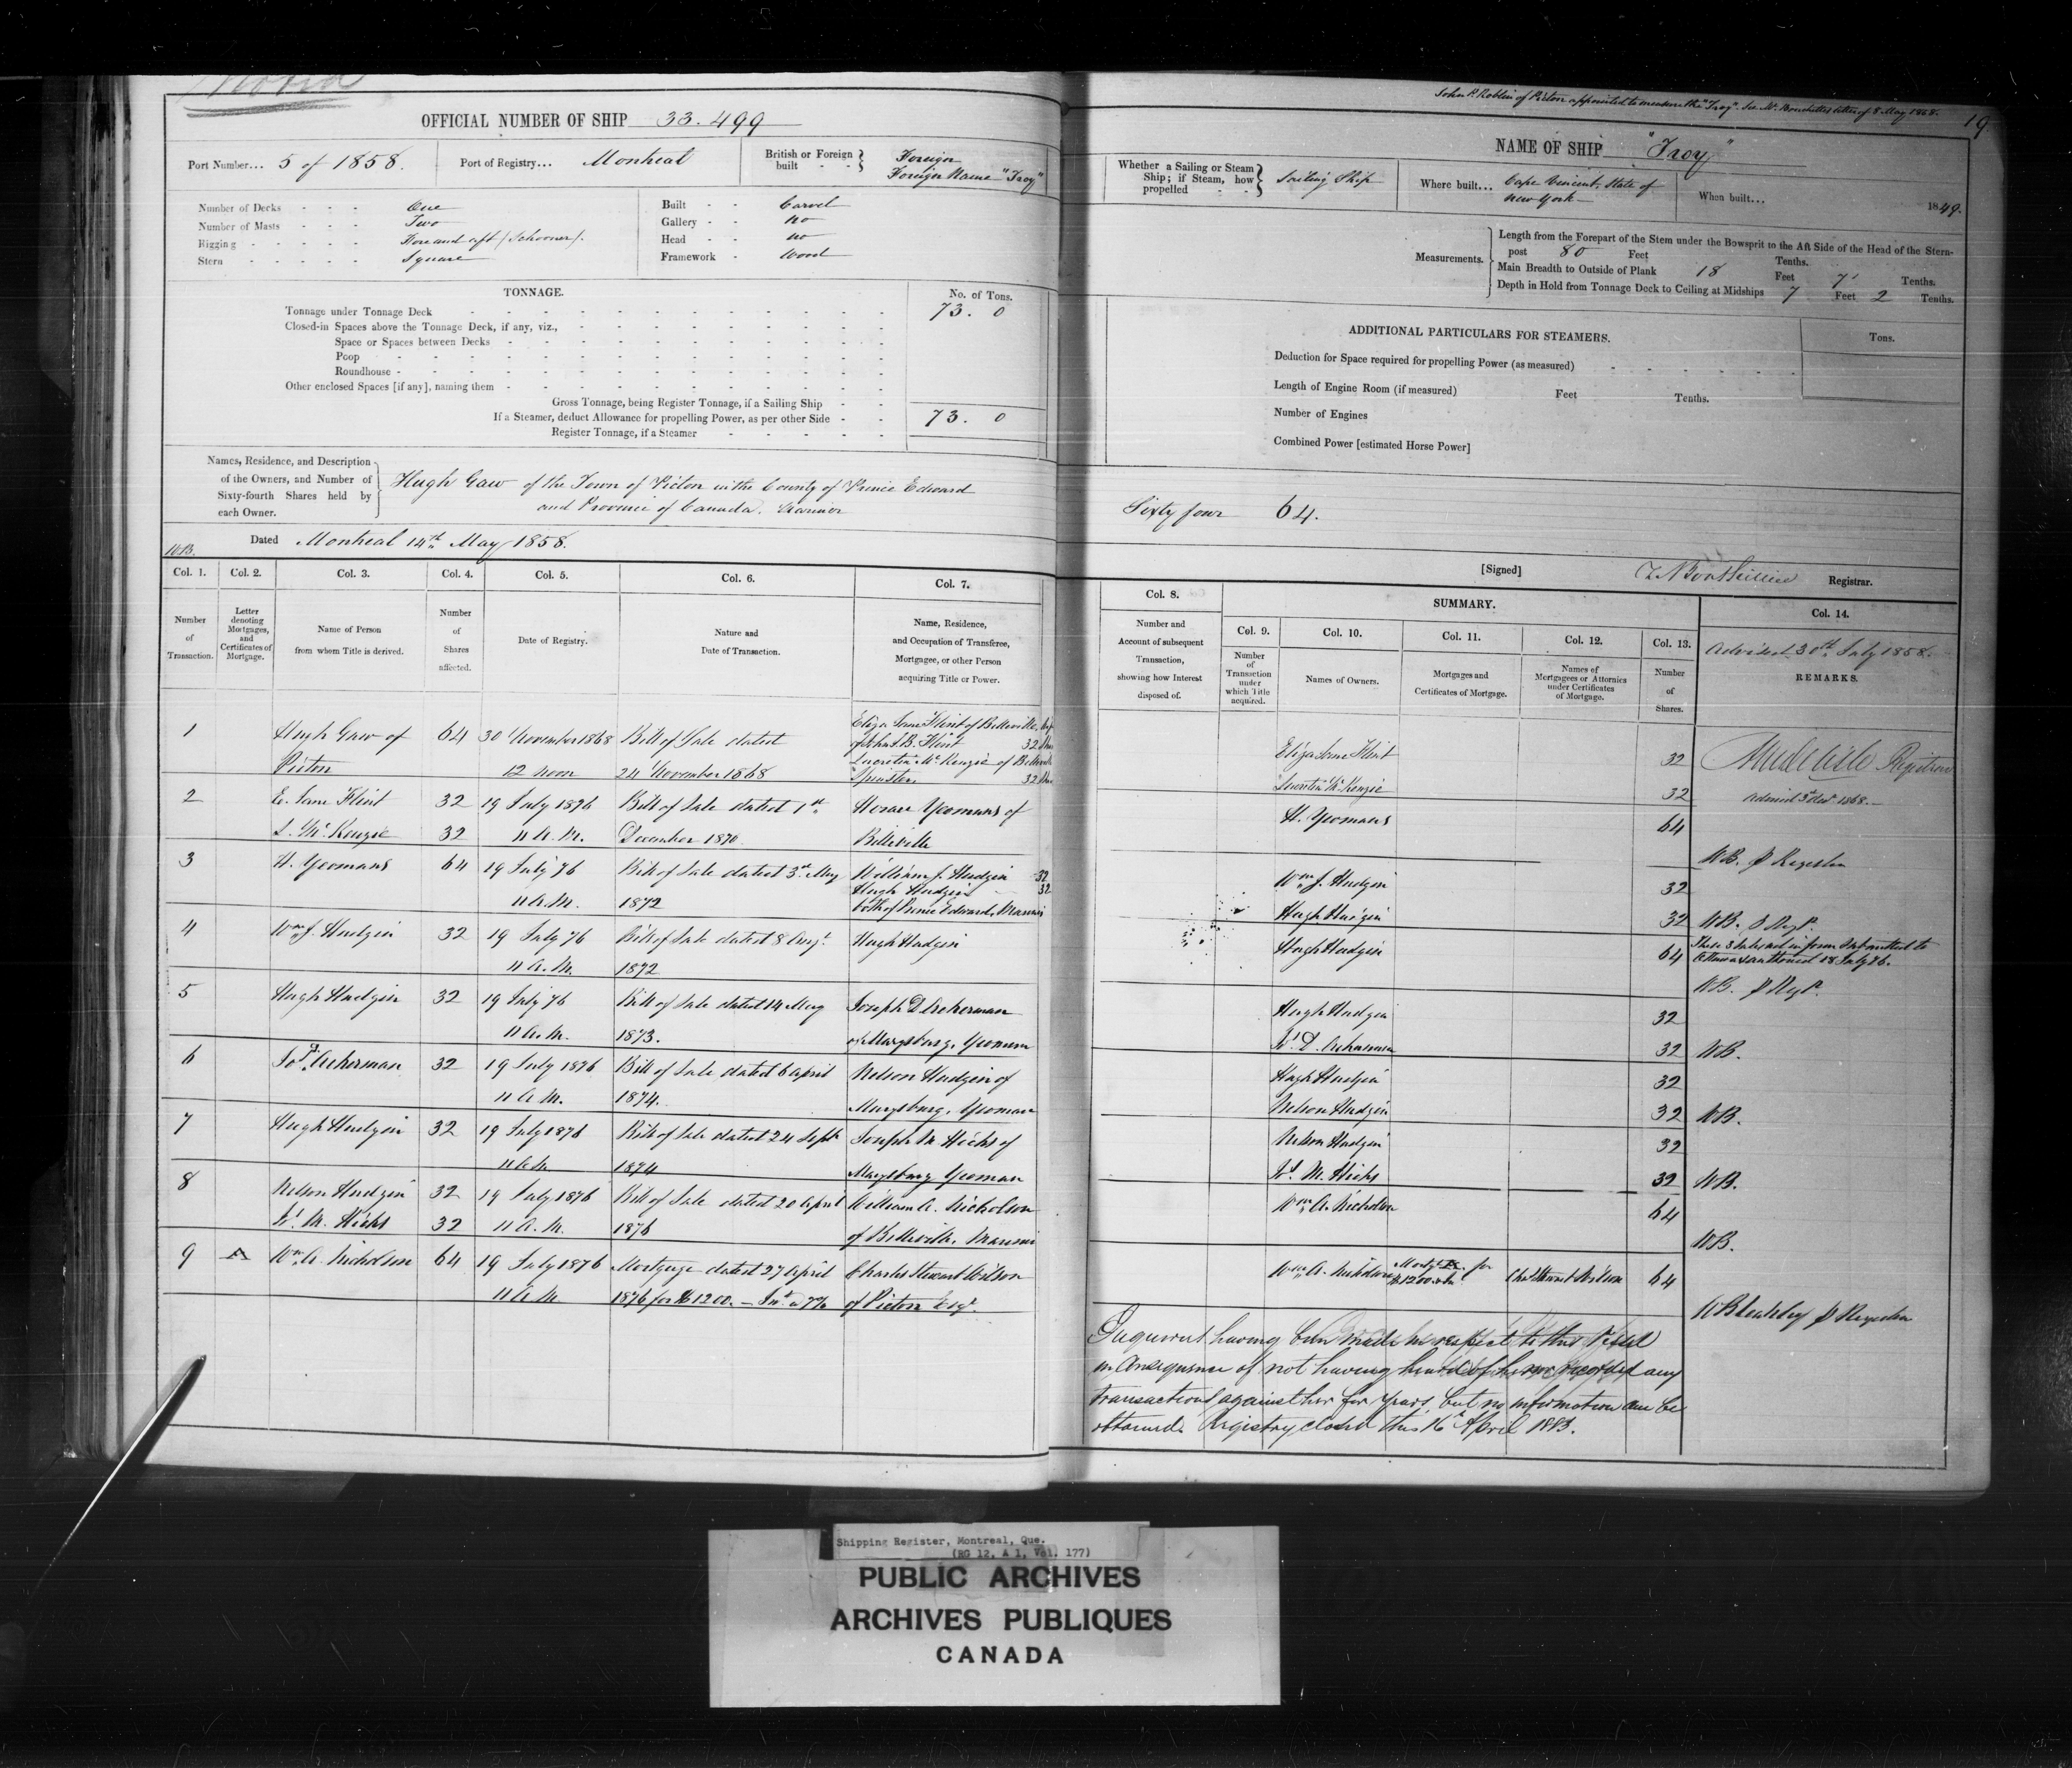 John P. Roblin of Picton appointed to measure the "Troy". See Mr. Bouchette's letter of 8 May 1858.
19
OFFICIAL NUMBER OF SHIP 33.499
Port Number... 5 of 1858.
Port of Registry... Montreal
British or Foreign built - - } Foreign
Foreign Name "Troy"
Number of Decks - - - One
Number of Masts - - - Two
Rigging - - - - - Fore and aft (Schooner).
Stern - - - - - Square
Built - - Carvel
Gallery - - no
Head - - no
Framework - Wood
TONNAGE.
No. of Tons.
Tonnage under Tonnage Deck 73. 0
Closed-in Spaces above the Tonnage Deck, if any, viz.,
Space or Spaces between Decks
Poop
Roundhouse
Other enclosed Spaces [if any], naming them
Gross Tonnage, being Register Tonnage, if a Sailing Ship
If a Steamer, deduct Allowance for propelling Power, as per other Side 73. 0
Register Tonnage, if a Steamer
Names, Residence, and Description
of the Owners, and Number of
Sixty-fourth Shares held by
each Owner.
Hugh Gaw of the Town of Picton in the County of Prince Edward
and Province of Canada. Mariner
Dated Montreal 14th May 1858.
W.B.
NAME OF SHIP "Troy"
Whether a Sailing or Steam
Ship; if Steam, how
propelled - -
Sailing Ship
Where built... Cape Vincent, State of
New York
When built... 1849.
Measurements.
Length from the Forepart of the Stem under the Bowsprit to the Aft Side of the Head of the Stern-
post 80 Feet Tenths.
Main Breadth to Outside of Plank 18 Feet 7 Tenths.
Depth in Hold from Tonnage Deck to Ceiling at Midships 7 Feet 2 Tenths.
ADDITIONAL PARTICULARS FOR STEAMERS.
Tons.
Deduction for Space required for propelling Power (as measured)
Length of Engine Room (if measured) Feet Tenths.
Number of Engines
Combined Power [estimated Horse Power]
Sixty four 64.
[Signed] Registrar.
Col. 1. Col. 2. Col. 3. Col. 4. Col. 5. Col. 6. Col. 7.
Number of Transaction.
Letter denoting Mortgages, and Certificates of Mortgage.
Name of Person from whom Title is derived.
Number of Shares affected.
Date of Registry.
Nature and Date of Transaction.
Name, Residence, and Occupation of Transferee, Mortgagee, or other Person acquiring Title or Power.
1 Hugh Gaw of 64 30 November 1868 Bill of Sale dated Eliza Jane Flint of Belleville,
of John J.B. Flint 32
Picton 12 noon 24 November 1868 Lucretia McKenzie of
Spinster. 32
2 E. Jane Flint 32 19 July 1876 Bill of Sale dated 1st Horace Yeomans of
L. McKenzie 32 11 A.M. December 1870 Belleville
3 H. Yeomans 64 19 July 76 Bill of Sale dated 3rd May William J. Hudgin 32
Hugh Hudgin 32
11 A.M. 1872 both of Prince Edward, Mariners
4 Wm J. Hudgin 32 19 July 76 Bill of Sale dated 8 Augt. Hugh Hudgin
11 A.M. 1872
5 Hugh Hudgin 32 19 July 76 Bill of Sale dated 14 May Joseph D. Ackerman
11 A.M. 1873. of Marysburg. Yeoman
6 Jos. D. Ackerman 32 19 July 1876 Bill of Sale dated 6 April Nelson Hudgin of
11 A.M. 1874. Marysburg. Yeoman
7 Hugh Hudgin 32 19 July 1876 Bill of Sale dated 24 Sept. Joseph M. Hicks of
11 A.M. 1874 Marysburg Yeoman
8 Nelson Hudgin 32 19 July 1876 Bill of Sale dated 20 April William A. Nicholson
Js. M. Hicks 32 11 A.M. 1876 of Belleville. Mariner
9 A Wm A. Nicholson 64 19 July 1876 Mortgage dated 27 April Charles Stewart Wilson
11 A.M. 1876 for $1200. - Int. @ 7% of Picton Esqr.
Col. 8.
Number and Account of subsequent Transaction, showing how Interest disposed of.
SUMMARY.
Col. 9. Col. 10. Col. 11. Col. 12. Col. 13. Col. 14.
Number of Transaction under which Title acquired.
Names of Owners.
Mortgages and Certificates of Mortgage.
Names of Mortgagees or Attornies under Certificates of Mortgage.
Number of Shares.
Advised 30th July 1858.
REMARKS.
Eliza Jane Flint 32 Registrar
Lucretia McKenzie 32 Advised 3d Decr 1868.
H. Yeomans 64
W.B. p Registrar
Wm J. Hudgin 32
Hugh Hudgin 32 W.B. p Regr.
Hugh Hudgin 64 These 3 Sales not in form submitted to
Ottawa & authorised 18 July 76.
W.B. p Regr.
Hugh Hudgin 32
Js. D. Ackerman 32 W.B.
Hugh Hudgin 32
Nelson Hudgin 32 W.B.
Nelson Hudgin 32
Js. M. Hicks 32 W.B.
Wm A. Nicholson 64
W.B.
Wm A. Nicholson Mortge A. for $1200 & Int. Chas Stewart Wilson 64
p Registrar
Inquiries having been made in respect to this Vessel
in consequence of not having heard of her nor recorded any
transactions against her for years, but no information can be
obtained. Registry closed this 16th April 1883.
Shipping Register, Montreal, Que.
(RG 12, A 1, Vol. 177)
PUBLIC ARCHIVES
ARCHIVES PUBLIQUES
CANADA